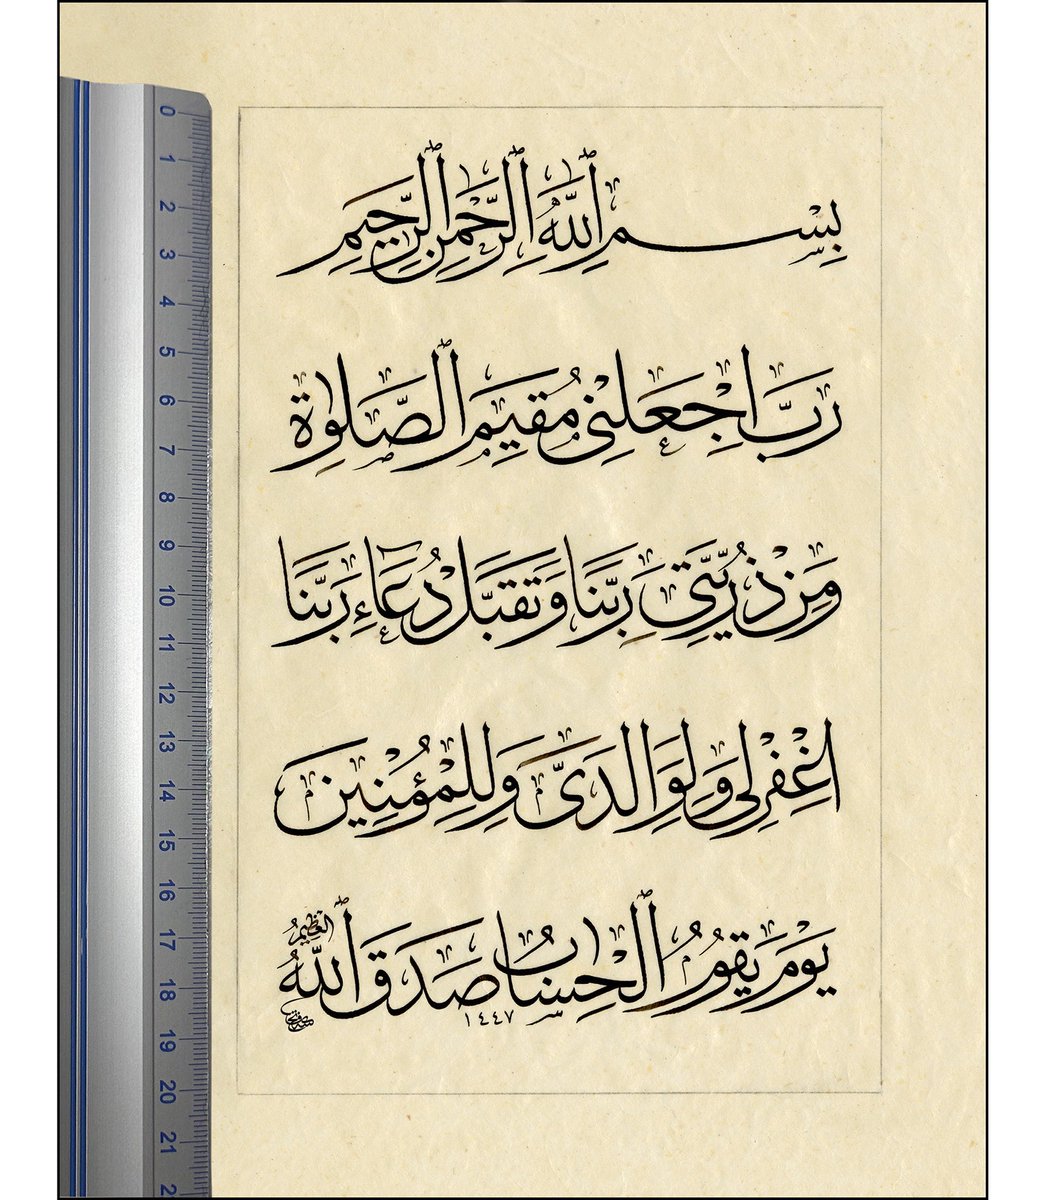 بِسْمِ ٱللَّهِ ٱلرَّحْمٰنِ ٱلرَّحِيمِ
رَبِّ اجْعَلْنِى مُقِيمَ ٱلصَّلٰوةِ
وَمِنْ ذُرِّيَّتِى رَبَّنَا وَتَقَبَّلْ دُعَاءِ رَبَّنَا
اغْفِرْ لِى وَلِوَالِدَىَّ وَلِلْمُؤْمِنِينَ
يَوْمَ يَقُومُ ٱلْحِسَابُ صَدَقَ ٱللَّهُ العظيم
١٤٤٧
0
1
2
3
4
5
6
7
8
9
10
11
12
13
14
15
16
17
18
19
20
21